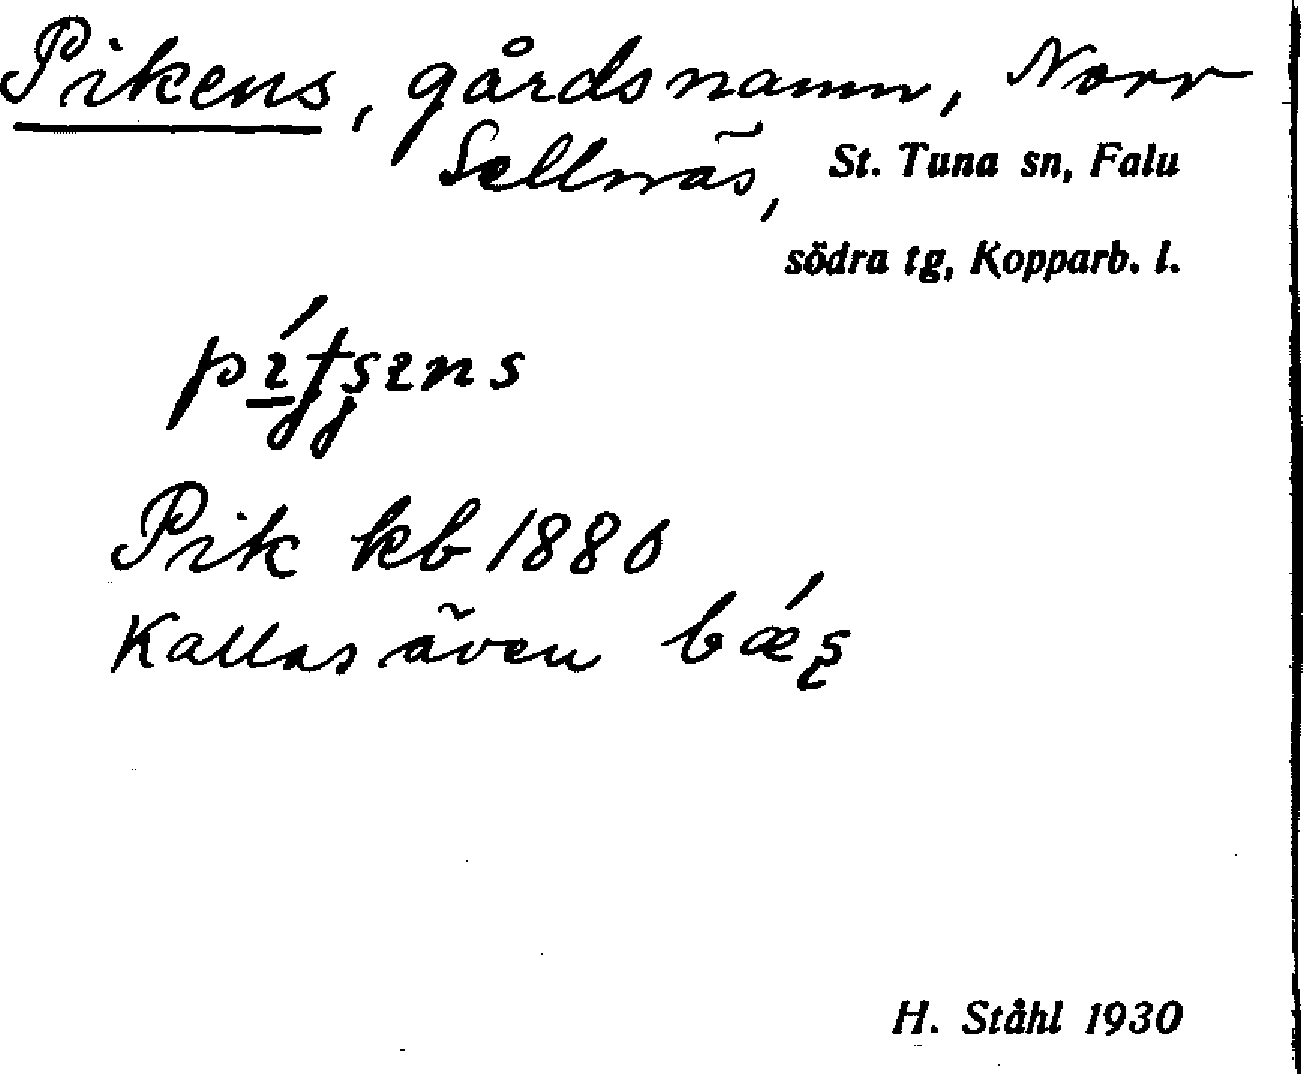 Pikens, gårdsnamn, Norr
Sellnäs, St. Tuna sn, Falu
södra tg, Kopparb. l.
Pik kb 1880
Kallas även
H. Ståhl 1930